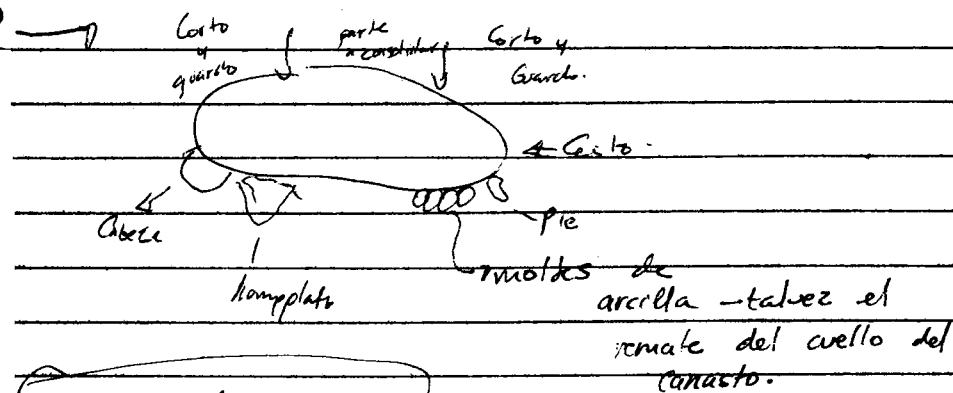 Corto y guardo
parte a consolidar
Corto y Guardo.
Cesto.
Cabeza
Pie
homoplato
moldes de
arcilla - talvez el
remate del cuello del
canasto.